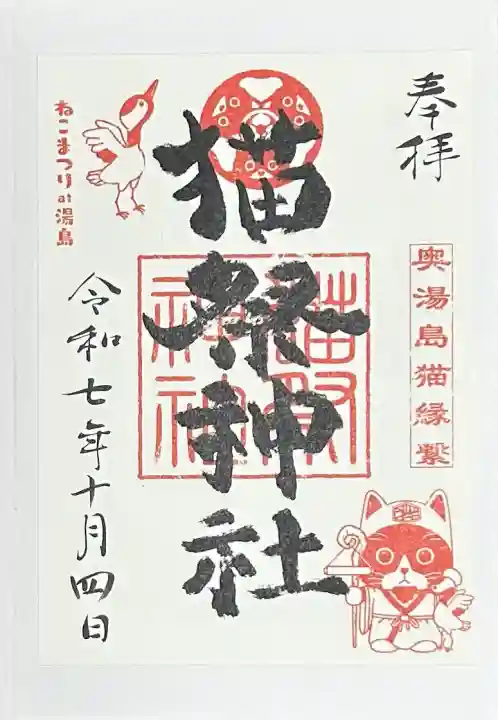 奉拝
奥湯島猫縁繋
猫祭神社
猫祭
神社
ねこまつり at 湯島
令和七年十月四日